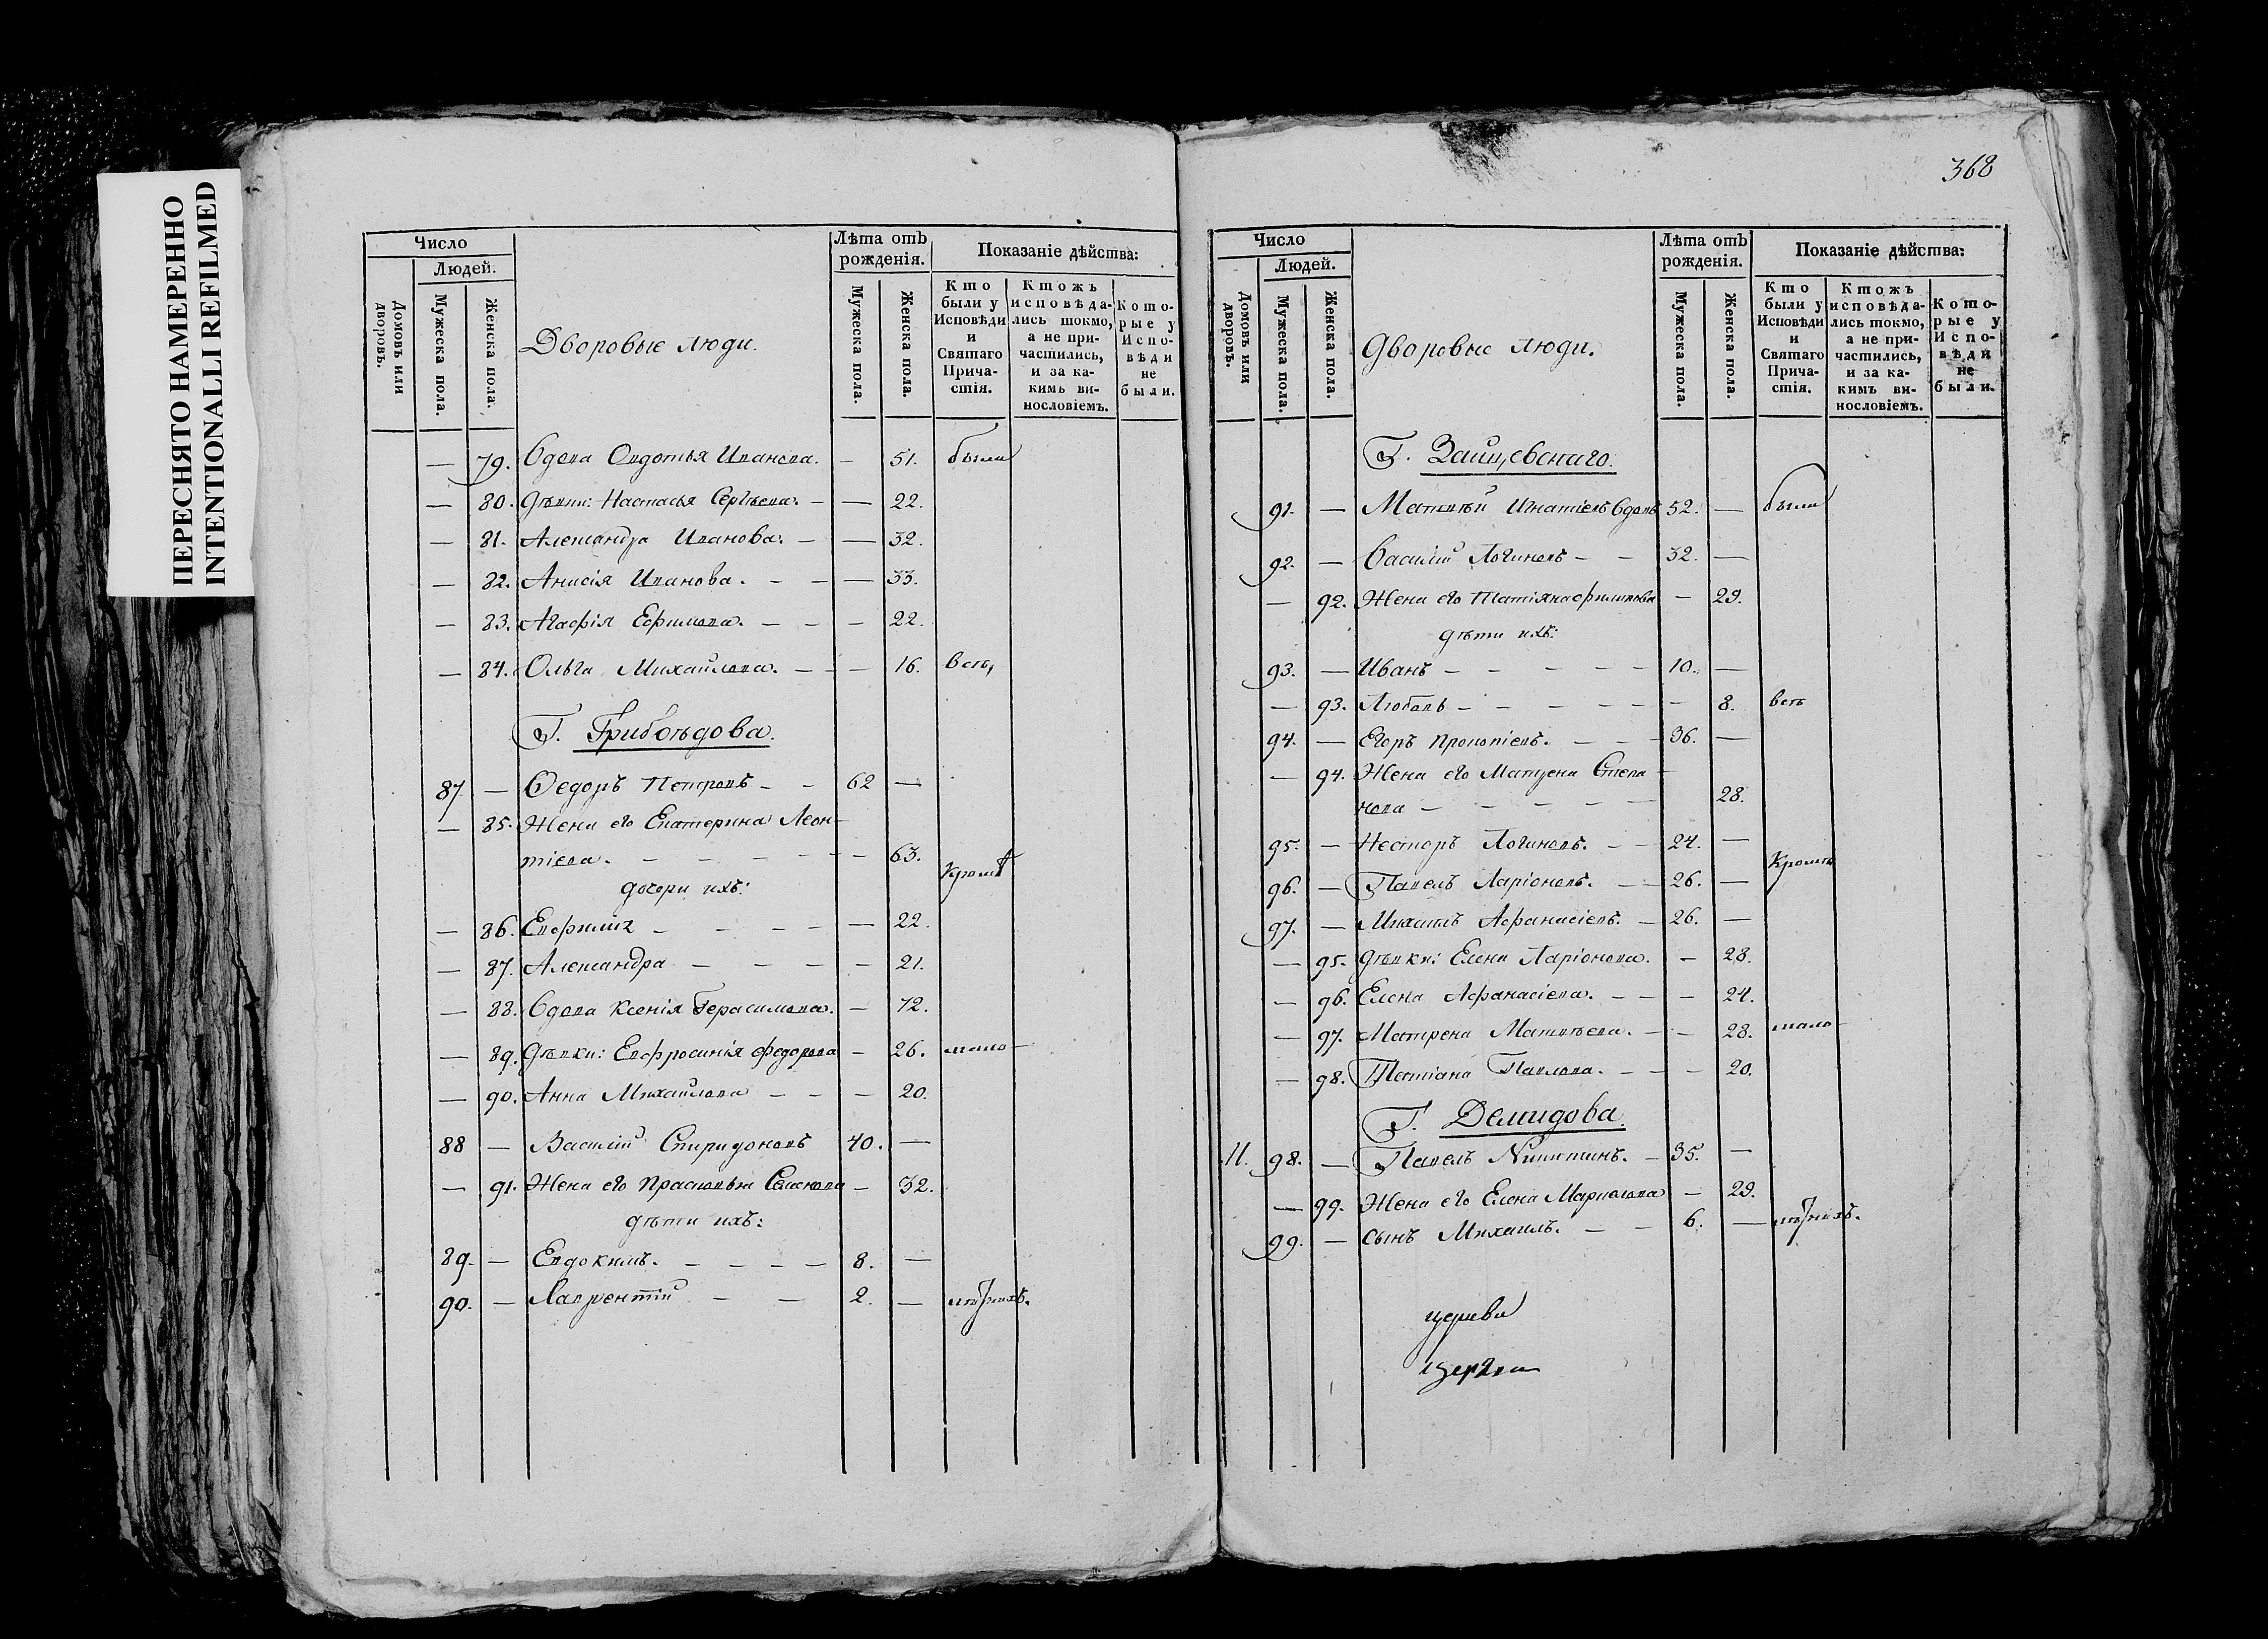 ПЕРЕСНЯТО НАМЕРЕННО
INTENTIONALLI REFILMED
Число
Людей.
Домовъ или дворовъ.
Мужеска пола.
Женска пола.
Дворовые люди.
Лѣта отъ рожденія.
Мужеска пола.
Женска пола.
Показаніе дѣйства:
Кто были у Исповѣди и Святаго Причастія.
Ктожъ исповѣдались токмо, а не причастились, и за какимъ винословіемъ.
Которые у Исповѣди не были.
— 79. Вдова Авдотья Иванова. — 51. были
— 80. Дѣвки: Настасья Сергѣева. — — 22.
— 81. Александра Иванова. — — 32.
— 82. Анисія Иванова. — — — 33.
— 83. Агафія Ефимова. — — — 22.
— 84. Ольга Михайлова. — — 16. всѣ,
Г. Грибоѣдова.
87 — Ѳедоръ Петровъ — — 62 —
— 85. Жена его Екатерина Леон-
тіева. — — — — — — 63.
дочери ихъ: Кромѣ
— 86. Евфимія — — — — — 22.
— 87. Александра — — — — 21.
— 88. Вдова Ксенія Герасимова. — 72.
— 89. Дѣвки: Евфросинія Федорова — 26. мало-
— 90. Анна Михайлова — — — 20.
88 — Василій Спиридоновъ 40. —
— 91. Жена его Прасковья Семенова — 32.
дѣти ихъ:
89. — Евдокимъ. — — — — 8. —
90. — Лаврентій — — 2. —
368
Число
Людей.
Домовъ или дворовъ.
Мужеска пола.
Женска пола.
Дворовые люди.
Лѣта отъ рожденія.
Мужеска пола.
Женска пола.
Показаніе дѣйства:
Кто были у Исповѣди и Святаго Причастія.
Ктожъ исповѣдались токмо, а не причастились, и за какимъ винословіемъ.
Которые у Исповѣди не были.
Г. Зайцевскаго.
91. — Матвѣй Игнатіевъ Вдовъ 52. — были
92. — Василій Логиновъ — — 32. —
— 92. Жена его Татіяна Филипова — 29.
дѣти ихъ:
93. — Иванъ — — — — — 10. —
— 93. Любовь — — — — — — 8. всѣ
94. — Егоръ Прокопіевъ. — — — 36. —
— 94. Жена его Матрена Степа-
нова — — — — — 28.
95. — Несторъ Логиновъ. — — 24. —
Кромѣ
96. — Павелъ Ларіоновъ. — — 26. —
97. — Михаилъ Афанасіевъ. — 26. —
— 95. Дѣвки: Елена Ларіонова. — 28.
— 96. Елена Афанасіева. — — — 24.
— 97. Матрена Матвѣева. — — 28. мало-
— 98. Татіана Павлова. — — — 20.
Г. Демидова.
11. 98. — Павелъ Никитинъ. — 35. —
— 99. Жена его Елена — 29.
99. — сынъ Михаилъ. — — 6. —
церкви